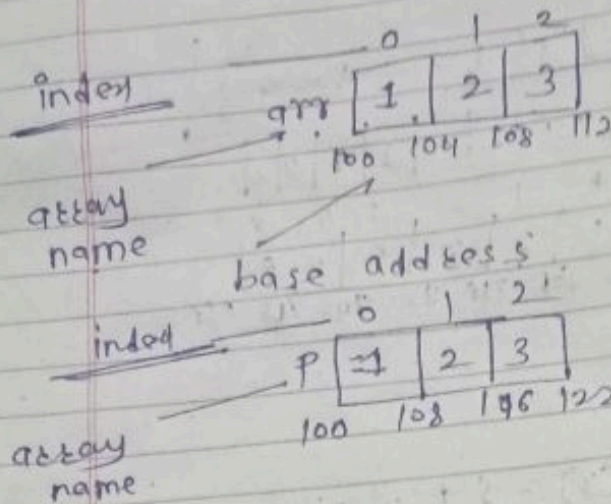 0 1 2
index
arr 1 2 3
100 104 108 112
array
name
base address
0 1 2
index
P 1 2 3
100 108 196 122
array
name